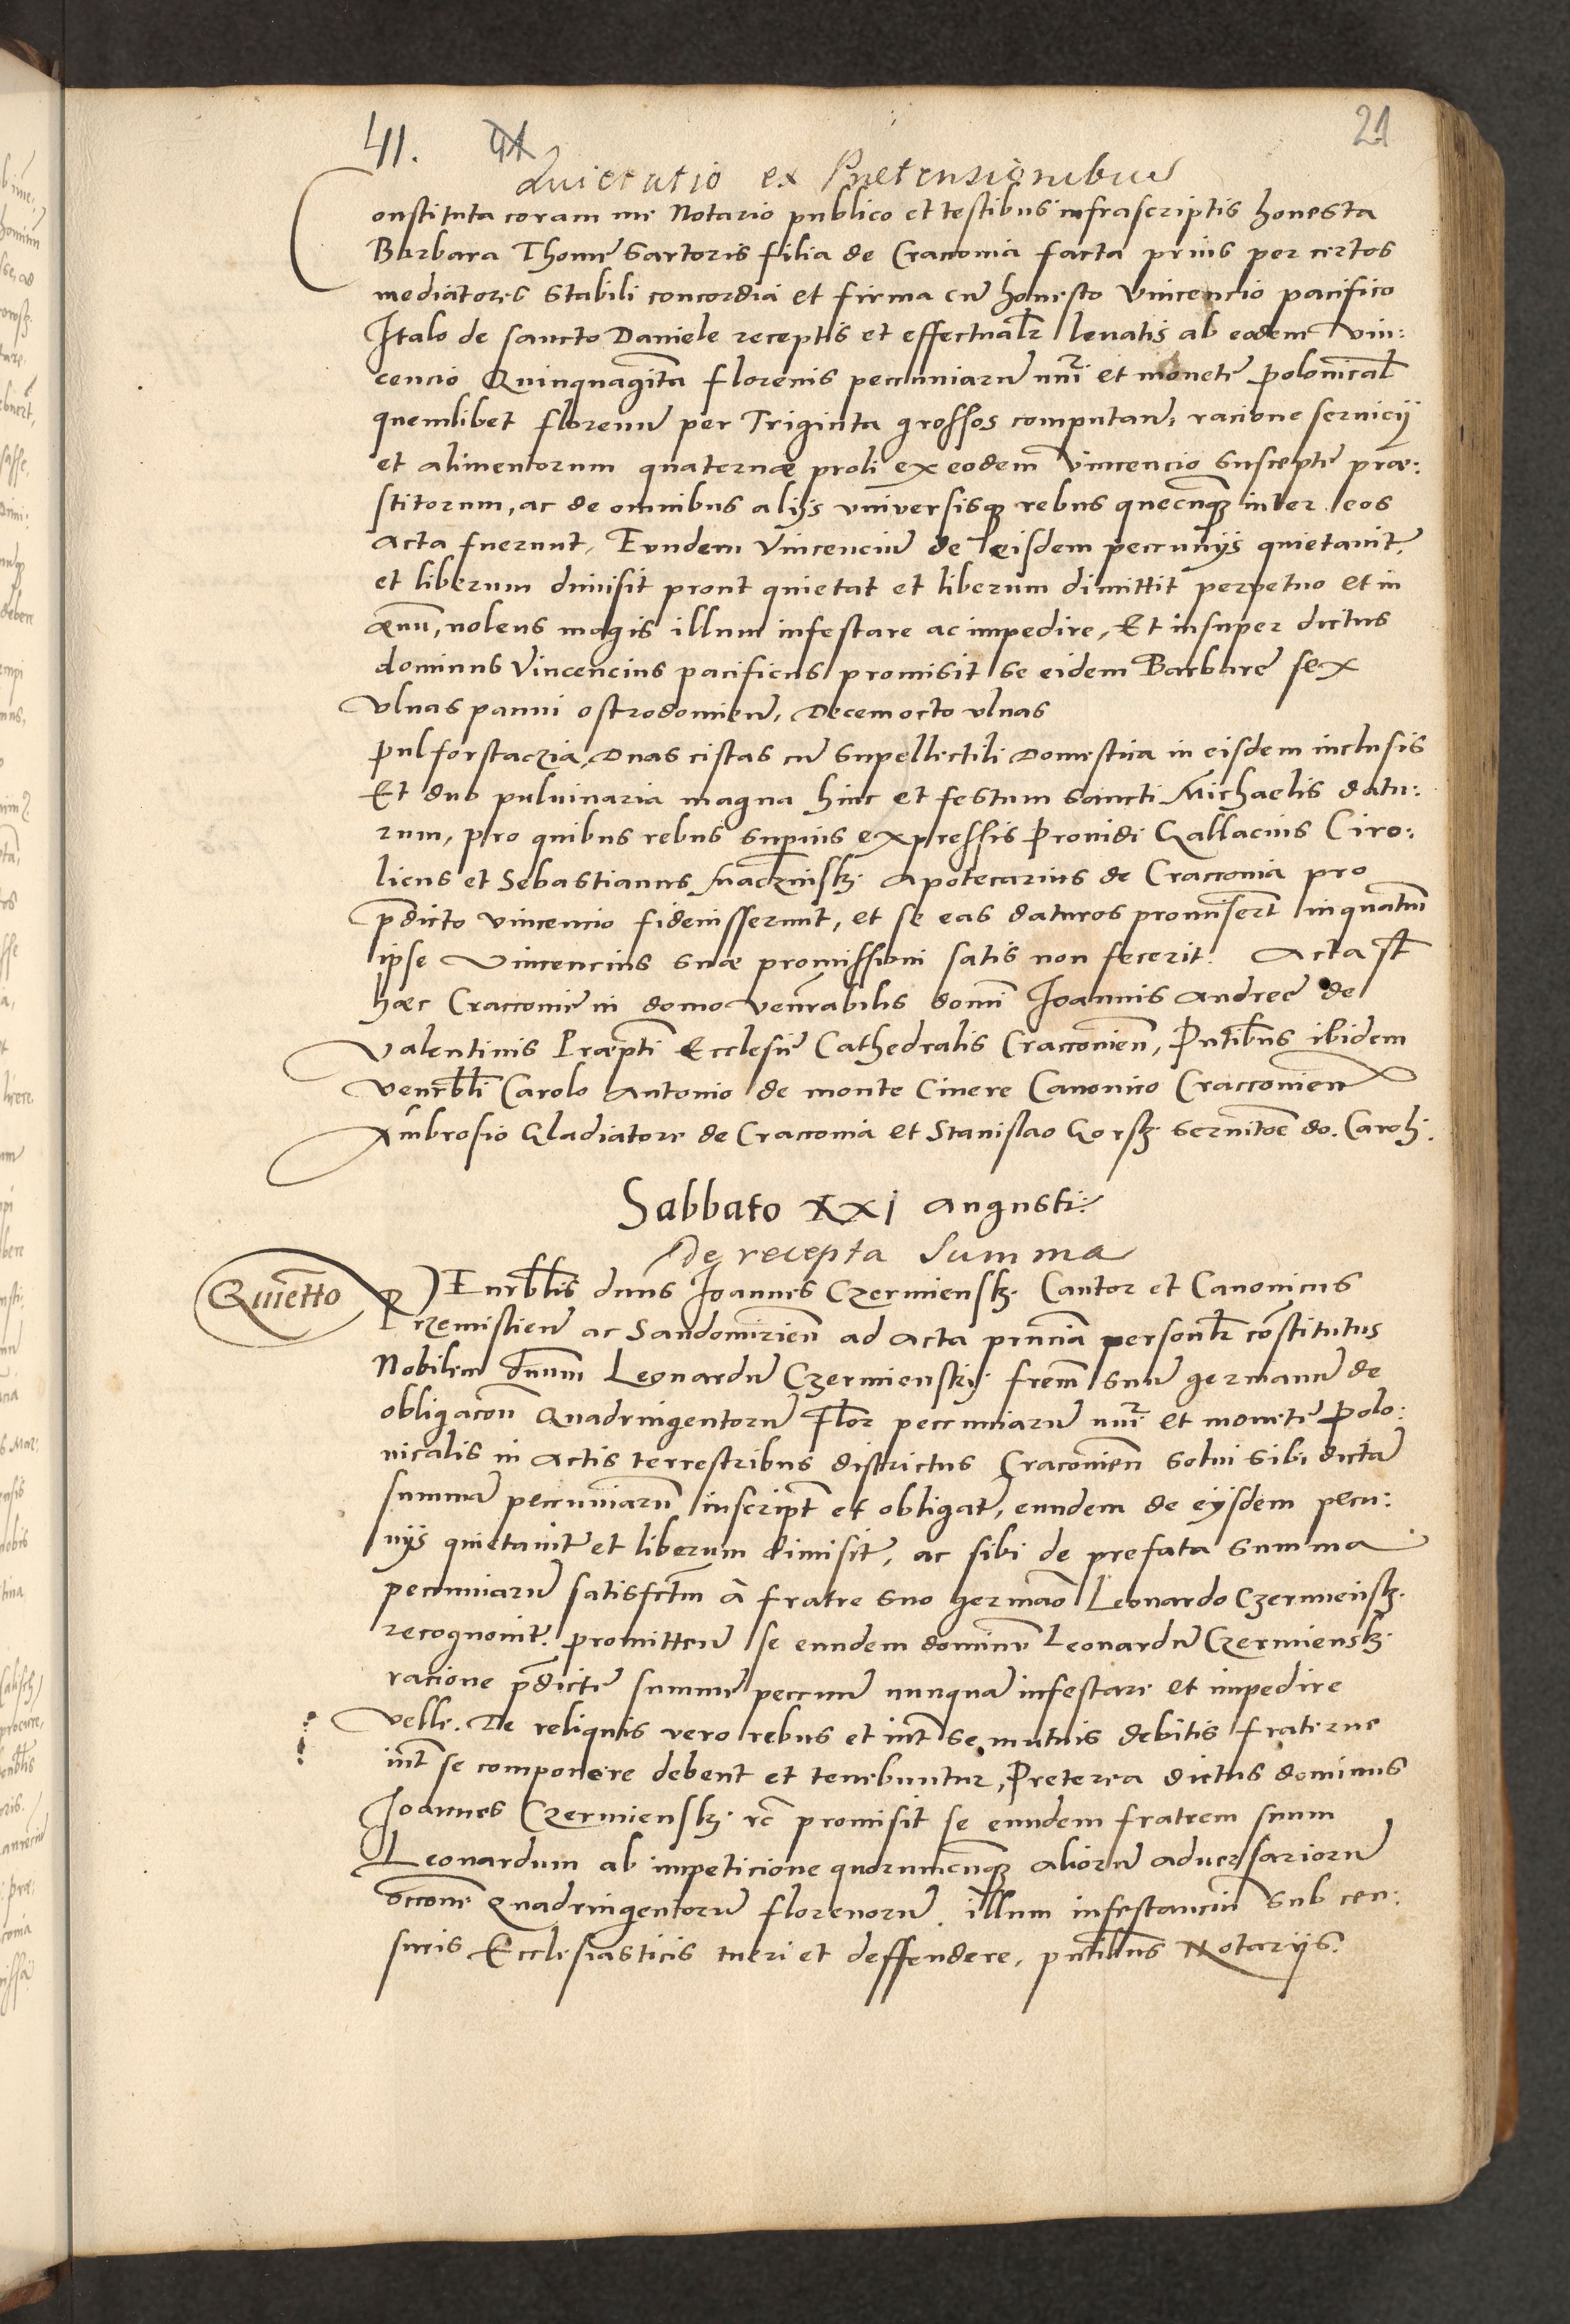 41. 21
Quietatio ex Prętensionibus
Constituta coram me Notario publico et testibus infrascriptis honesta
Barbara Thomę Sartoris filia de Craccovia facta prius per certos
mediatores stabili concordia et firma cũ honesto Vincencio pacifico
Italo de sancto Daniele receptis et effectualr̃ levatis ab eodem Vin:
cencio Quinquagĩta florenis peccuniarũ nũri et monetę polonical̃
quemlibet florenũ per Triginta grossos computan̄, racione servicÿ
et alimentorum quaternæ proli ex eodem Vincencio susceptę præ:
stitorum, ac de omnibus alÿs universisq̃ rebus quecũq̃ inter eos
acta fuerunt, Eundem Vincenciũ de eisdem peccunÿs quietavit,
et liberum dimisit prout quietat et liberum dimittit perpetuo et in
ævũ, nolens magis illum infestare ac impedire, Et insuper dictus
dominus Vincencius pacificus promisit se eidem Barbarę sex
Ulnas panni ostrodomien̄, Decem octo ulnas
pulforstaczia, Duas cistas cũ supellectili Domestica in eisdem inclusis
Et duo pulvinaria magna hinc et festum sancti Michaelis datu:
rum, pro quibus rebus superius expressis Providi Gallacius Ciro:
licus et Sebastianus Apotecarius de Craccovia pro
p̄dicto Vincencio fideiusserunt, et se eas daturos promiser̃t inquantũ
ipse Vincencius suæ promissioni satis non fecerit. Acta st̃
hæc Craccovię in domo venerabilis domĩ Joannis Andreę de
Valentinis Præp̃ti Ecclesię Cathedralis Craccovien̄, Pñtibus ibidem
Venrbl̃i Carolo Antonio de monte Cinere Canonico Craccovien̄
Ambrosio Gladiatore de Craccovia et Stanislao Gorsk. servitoe do. Caroli.
Sabbato XXI Augusti.
De recepta Summa
Quietto
VEnrbl̃is dñus Joannes Czermiensk. Cantor et Canonicus
Przemislien̄ ac Sandomirien̄ ad Acta pñcia personlr̃ cõstitutus
Nobilem dñum Leonardũ Czermienskÿ frem̃ suũ germanũ de
obligacõn Quadringentorũ Flor̃ peccuniarũ nũri et monetę Polo:
nicalis in Actis terrestribus districtus Craccovien̄ solui sibi dictã
summã peccuniarũ inscript̃ et obligat̃, eundem de eÿsdem pecu:
nÿs quietavit et liberum dimisit, ac sibi de prefata summa
pecuniarũ satisfctm̃ a fratre suo germão Leonardo Czermiensk.
recognovit. promitten̄ se eundem dominũ Leonardũ Czermiensk.
racione p̄dictę summę peccun̄ nunquã infestare et impedire
Velle. De reliquis vero rebus et int̃ se mutuis debitis fraterne
int̃ se componere debent et tenebuntur, Preterea dictus dominus
Joannes Czermiensk. rc̃ promisit se eundem fratrem suum
Leonardum ab impeticione quorumcũq̃ aliorũ adversariorũ
occõne Quadringentorũ florenorũ illum infestanciũ sub cen:
suris Ecclesiasticis tueri et deffendere, pñtibus Notarÿs.